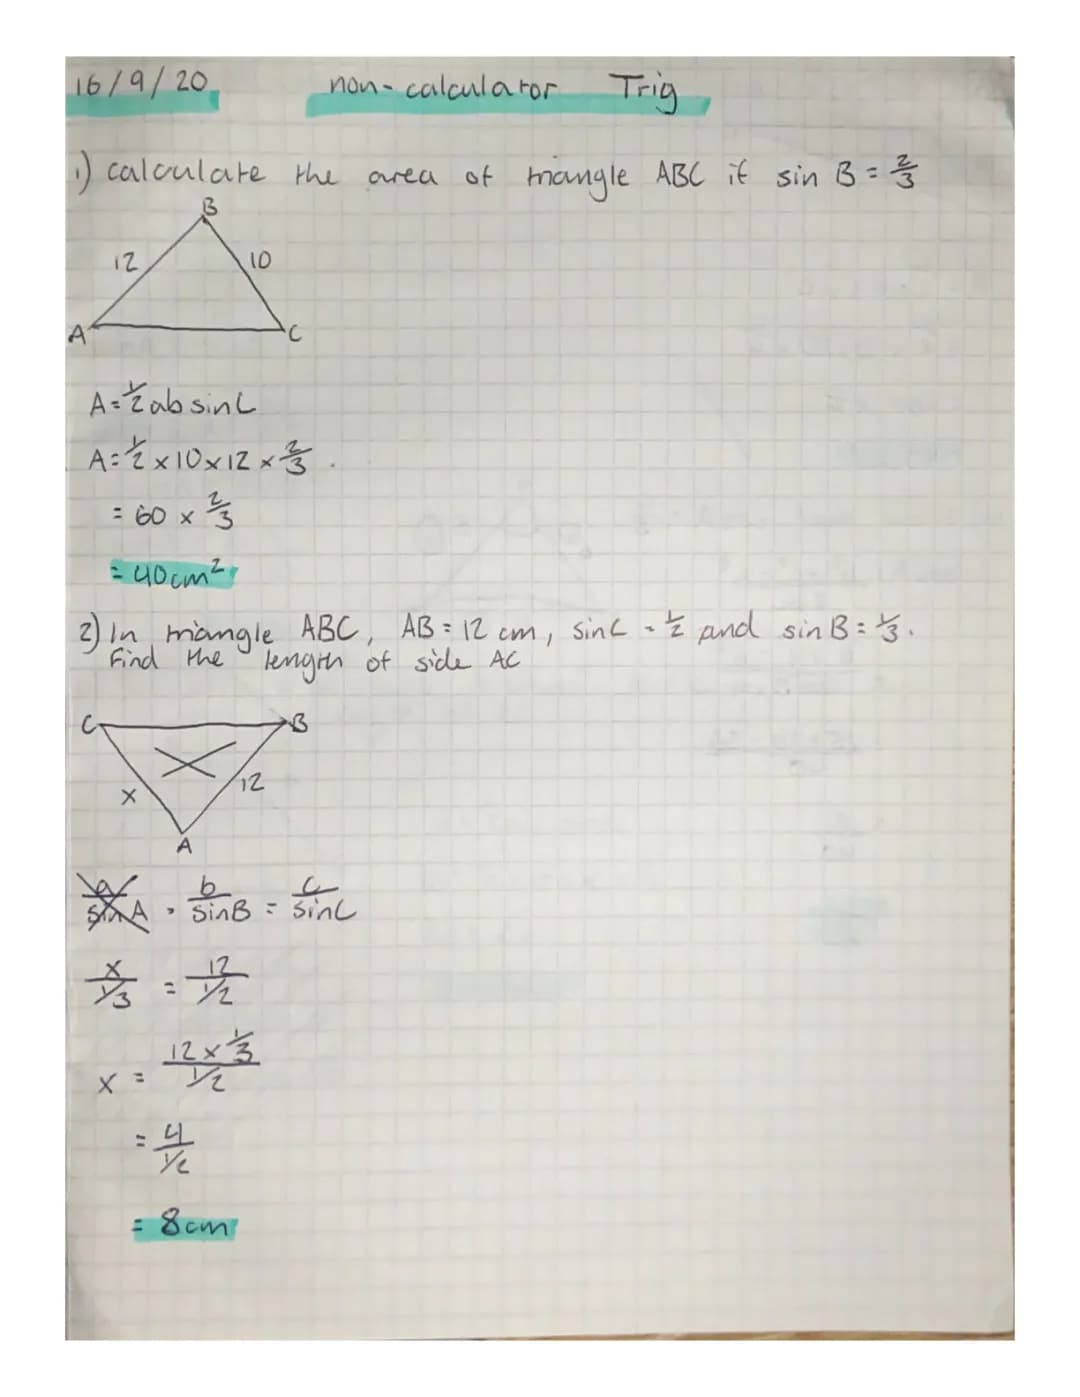 16/9/20 non-calculator Trig
1) calculate the area of triangle ABC if sin B = 2/3
B
12 10
A C
A = 1/2 ab sin C
A = 1/2 x 10 x 12 x 2/3
= 60 x 2/3
= 40cm²
2) In triangle ABC, AB = 12 cm, sin C = 1/2 and sin B = 1/3.
Find the length of side AC
C B
x 12
A
a/sin A = b/sin B = c/sin C
x/(1/3) = 12/(1/2)
x = (12 x 1/3)/(1/2)
= 4/(1/2)
= 8cm